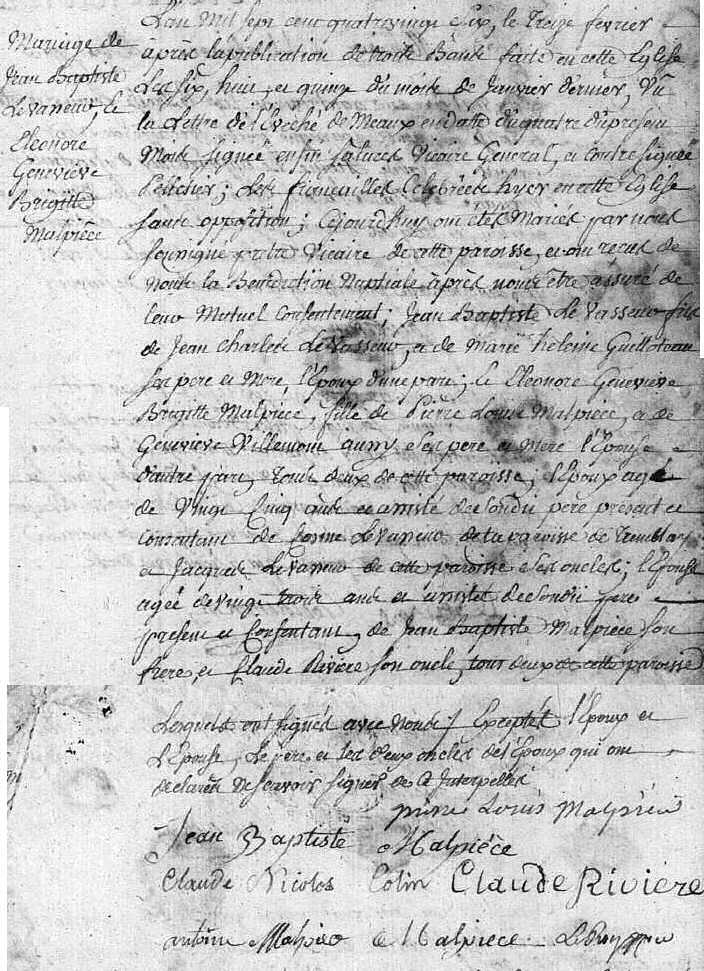 Mariage de
Jean Baptiste
Levasseur, &
Eleonore
Genevieve
Brigitte
Malpièce
L'an Mil sept cent quatrevingt six, le Treize fevrier
après la publication de trois Bans faite en cette Eglise
Les six, huit et quinze du mois de Janvier dernier, Vû
la Lettre de l'Evêché de Meaux en datte du quatre du present
Mois signée Vicaire General, et contresignée
Pelletier; Les fiancailles Celebrées hyer en cette Eglise
sans opposition; Cejourd'huy ont etés Mariés par nous
soussigné prêtre Vicaire de cette paroisse, et ont recus de
Nous la Benediction Nuptiale après nous être assuré de
leur Mutuel Consentement; Jean Baptiste Le Vasseur fils
de Jean Charles Le Vasseur, et de Marie heleine
ses pere et Mere, l'Epoux d'une part; & Eleonore Genevieve
Brigitte Malpièce, fille de Pierre Louis Malpièce, et de
Genevieve Villemont aussy ses pere et mere l'Epouse
d'autre part, Tous deux de cette paroisse, l'Epoux agé
de Vingt Cinq ans et assisté de sondit pere present et
Consentant de Levasseur de la paroisse de Tremblay
et Jacques Levasseur de cette paroisse ses oncles; l'Epouse
agée de vingt trois ans et assistée de sondit pere
present et Consentant, de Jean Baptiste Malpièce son
frere, et Claude Riviere son oncle, tous deux de cette paroisse
Lesquels ont signés avec Nous Excepté l'Epoux et
L'Epouse, Le pere et les deux oncles de l'Epoux qui ont
declarés ne scavoir signer de ce Interpellés
pierre Louis Malpiece
Jean Baptiste Malpièce
Claude Nicolas Colin Claude Riviere
antoine Malpiece Malpiece